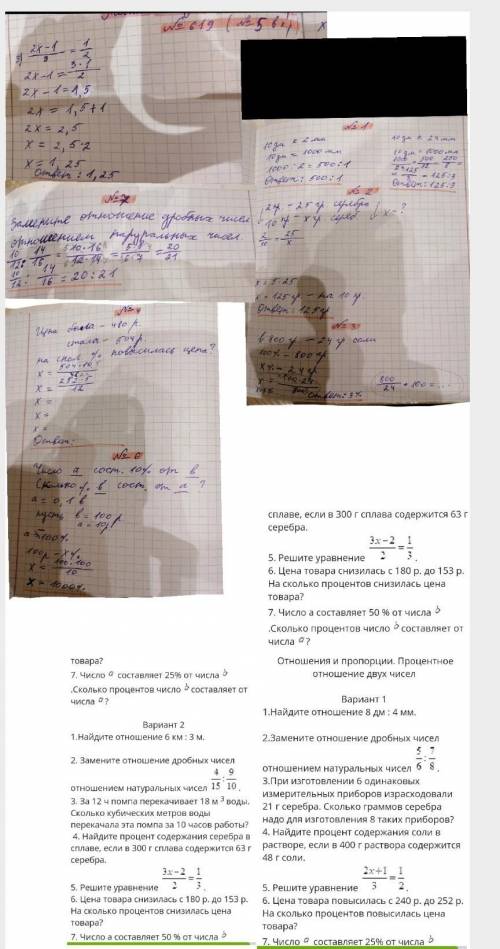 №619 (№5 в2) X
2x-1/3 = 1/2
2x-1 = 3·1/2
2x-1=1,5
2x = 1,5+1
2x = 2,5
x = 2,5:2
x = 1,25
Ответ: 1,25
№1
10дм = 1000мм
1000:2 = 500:1
Ответ: 500:1
Ответ: 125:3
№2
x = 5·25
x = 125 гр - на 10 гр.
Ответ: 125гр
№3
в 800 гр - 24 гр соли
100% - 800 гр
x% - 24 гр
Ответ: 3%
800/24 · 100 = ...
Замените отношение дробных чисел
отношением натуральных чисел.
10/12 : 14/16 = 10·16/12·14 = 5·8/6·7 = 20/21
10/12 : 14/16 = 20:21
№4
Цена была - 480 р.
стала - 504р.
на скол % повысилась цена?
x =
x =
x =
Ответ:
№6
Число a сост. 10% от b
Сколько % b сост. от a ?
a = 0,1 b
пусть b = 100р
a = 10р
100р - x%
x = 100·100/10
x = 1000%
сплаве, если в 300 г сплава содержится 63 г
серебра.
5. Решите уравнение 3x-2/2 = 1/3.
6. Цена товара снизилась с 180 р. до 153 р.
На сколько процентов снизилась цена
товара?
7. Число а составляет 50 % от числа b
.Сколько процентов число b составляет от
числа a?
Отношения и пропорции. Процентное
отношение двух чисел
Вариант 1
1.Найдите отношение 8 дм : 4 мм.
2.Замените отношение дробных чисел
отношением натуральных чисел 5/6 : 7/8.
3.При изготовлении 6 одинаковых
измерительных приборов израсходовали
21 г серебра. Сколько граммов серебра
надо для изготовления 8 таких приборов?
4. Найдите процент содержания соли в
растворе, если в 400 г раствора содержится
48 г соли.
5. Решите уравнение 2x+1/3 = 1/2.
6. Цена товара повысилась с 240 р. до 252 р.
На сколько процентов повысилась цена
товара?
7. Число a составляет 25% от числа b
товара?
7. Число a составляет 25% от числа b
.Сколько процентов число b составляет от
числа a?
Вариант 2
1.Найдите отношение 6 км : 3 м.
2. Замените отношение дробных чисел
отношением натуральных чисел 4/15 : 9/10.
3. За 12 ч помпа перекачивает 18 м 3 воды.
Сколько кубических метров воды
перекачала эта помпа за 10 часов работы?
4. Найдите процент содержания серебра в
сплаве, если в 300 г сплава содержится 63 г
серебра.
5. Решите уравнение 3x-2/2 = 1/3.
6. Цена товара снизилась с 180 р. до 153 р.
На сколько процентов снизилась цена
товара?
7. Число а составляет 50 % от числа b